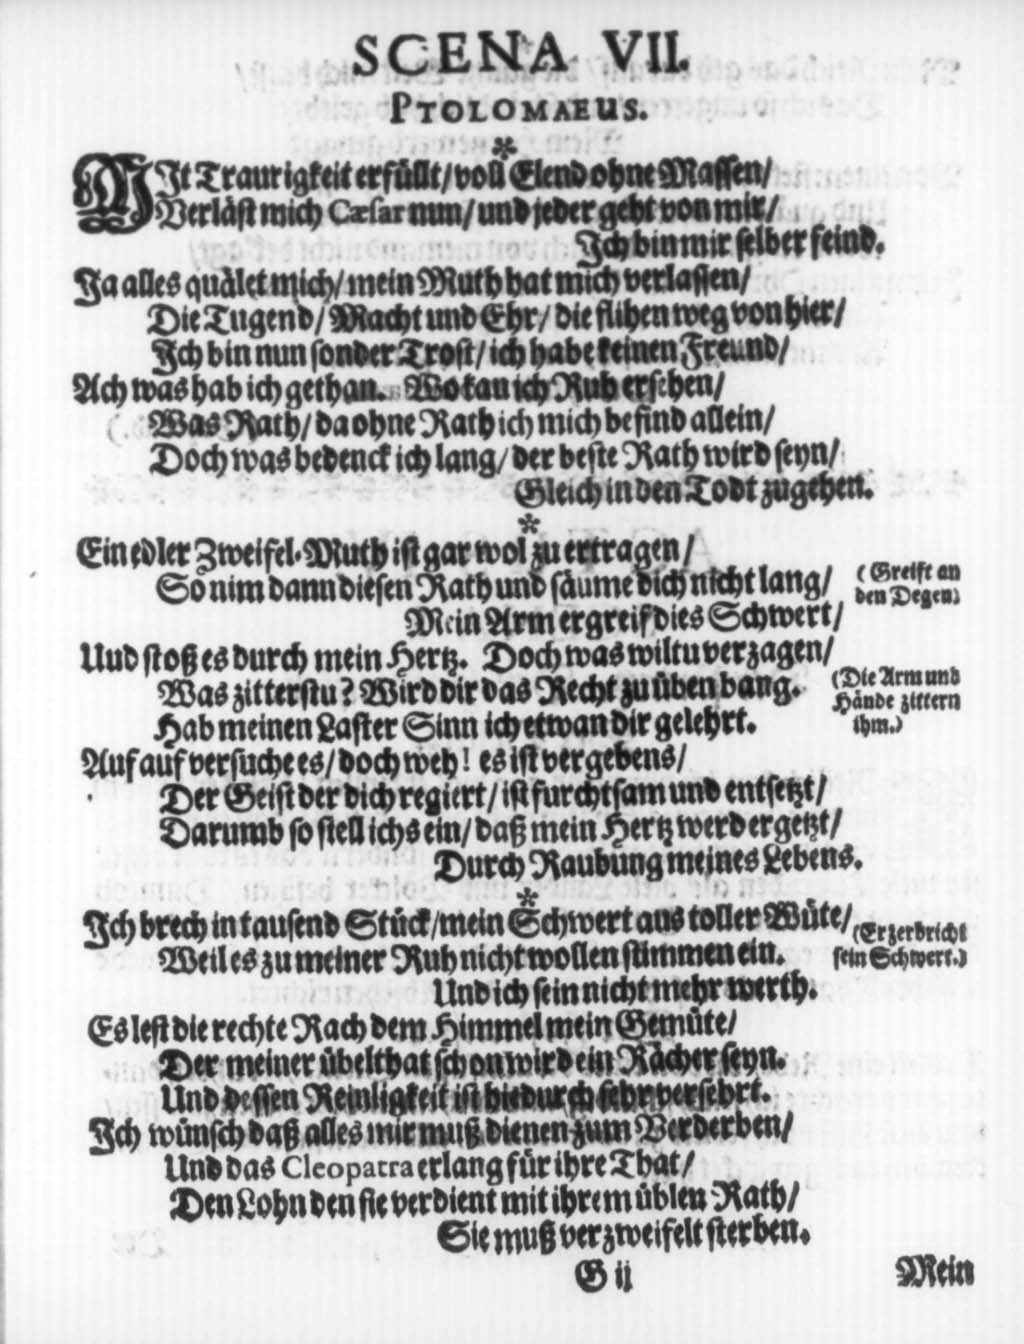 SCENA VII.
PTOLOMAEUS.
*
MIt Traurigkeit erfüllt/ voll Elend ohne Massen/
Verläst mich Cæsar nun/ und jeder geht von mir/
Ich bin mir selber feind.
Ja alles quälet mich/ mein Muth hat mich verlassen/
Die Tugend/ Macht und Ehr/ die flihen weg von hier/
Ich bin nun sonder Trost/ ich habe keinen Freund/
Ach was hab ich gethan. Wo kan ich Ruh ersehen/
Was Rath/ da ohne Rath ich mich befind allein/
Doch was bedenck ich lang/ der beste Rath wird seyn/
Gleich in den Todt zugehen.
*
Ein edler Zweifel-Muth ist gar wol zu ertragen/
So nim dann diesen Rath und säume dich nicht lang/ (Greift an
den Degen)
Mein Arm ergreif dies Schwert/
Uud stoß es durch mein Hertz. Doch was wiltu verzagen/
Was zitterstu? Wird dir das Recht zu üben bang. (Die Arm und
Hände zittern
ihm.)
Hab meinen Laster Sinn ich etwan dir gelehrt.
Auf auf versuche es/ doch weh! es ist vergebens/
Der Geist der dich regiert/ ist furchtsam und entsetzt/
Darumb so stell ichs ein/ daß mein Hertz werd ergetzt/
Durch Raubung meines Lebens.
*
Ich brech in tausend Stück/ mein Schwert aus toller Wüte/ (Er zerbricht
sein Schwert.)
Weil es zu meiner Ruh nicht wollen stimmen ein.
Und ich sein nicht mehr werth.
Es lest die rechte Rach dem Himmel mein Gemüte/
Der meiner übelthat schon wird ein Rächer seyn.
Und dessen Reinligkeit ist hiedurch sehr versehrt.
Ich wünsch daß alles mir muß dienen zum Verderben/
Und das Cleopatra erlang für ihre That/
Den Lohn den sie verdient mit ihrem üblen Rath/
Sie muß verzweifelt sterben.
G ij
Mein